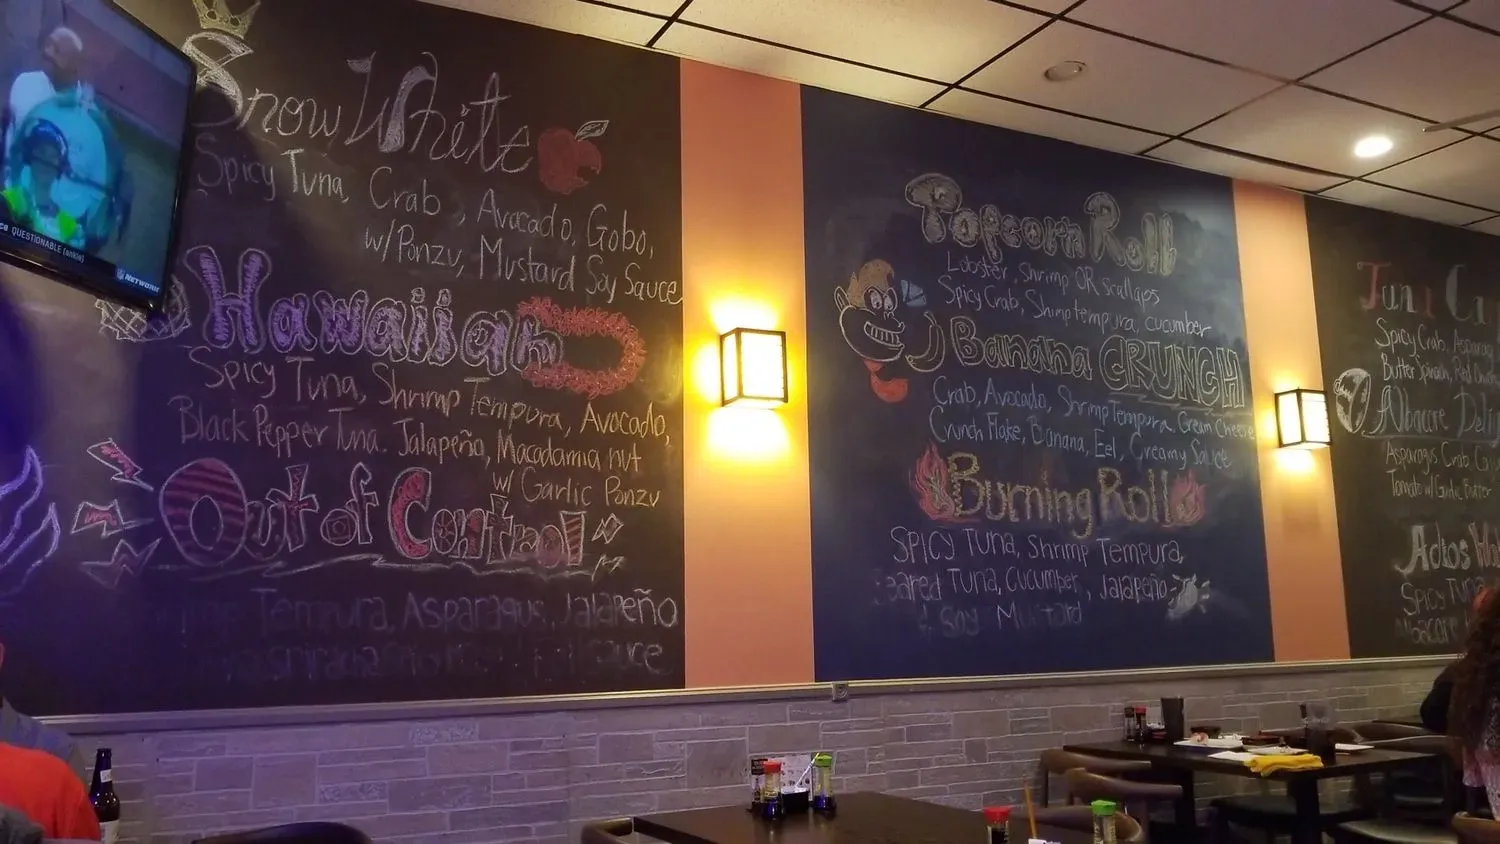 QUESTIONABLE (ankle)
NFL NETWORK
Snow White
Spicy Tuna, Crab, Avocado, Gobo,
w/ Ponzu, Mustard Soy Sauce
Hawaiian
Spicy Tuna, Shrimp Tempura, Avocado,
Black Pepper Tuna. Jalapeño, Macadamia nut
w/ Garlic Ponzu
Out of Control
Tempura, Asparagus, Jalapeño
Sriracha Sauce
Topcorn Roll
Lobster, Shrimp OR scallops
Spicy Crab, Shrimp tempura, cucumber
Banana CRUNCH
Crab, Avocado, Shrimp Tempura, Cream Cheese
Crunch Flake, Banana, Eel, Creamy Sauce
Burning Roll
SPICY TUNA, Shrimp Tempura,
Tuna, Cucumber, Jalapeño
Soy Mustard
Spicy Crab,
Butter
Albacore
Asparagus Crab,
Tomato w/ Garlic Butter
Spicy Tuna
Albacore